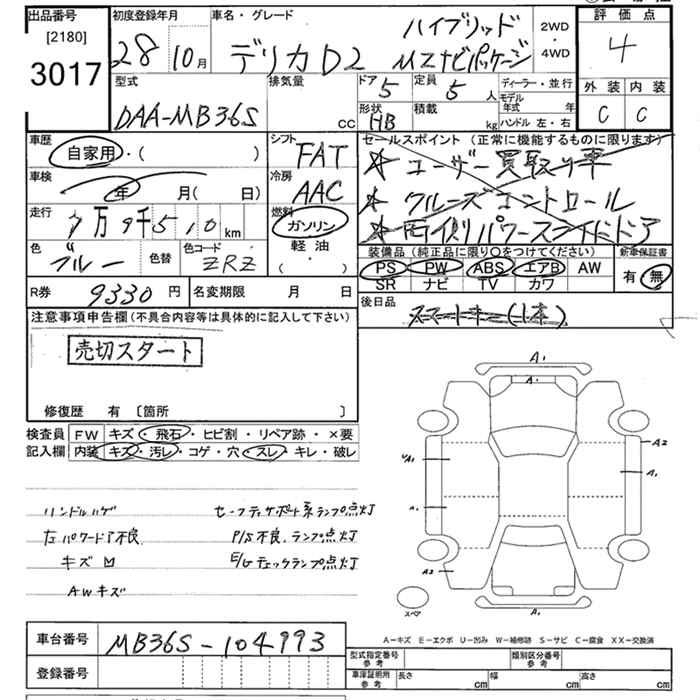 出品番号
[2180]
3017
初度登録年月
28 10月
車名・グレード
デリカD2
ハイブリッド
MZナビパッケージ
2WD
・
4WD
評価点
4
外装 内装
C C
型式
DAA-MB36S
排気量
cc
ドア 5
定員 5 人
ディーラー・並行
モデル年式 年
形状 HB
積載 kg
ハンドル 左・右
車歴
自家用・( )
シフト FAT
セールスポイント (正常に機能するものに限ります)
★ ユーザー買取り車
★ クルーズコントロール
★ 両側パワースライドドア
車検
年 月( 日)
冷房 AAC
走行
7万9千510km
燃料
ガソリン
軽油
( ・ )
色 ブルー
色替
色コード ZRZ
装備品 (純正品に限り〇をつけてください)
PS PW ABS エアB AW
SR ナビ TV カワ
新車保証書
有・無
R券 9330円
名変期限 月 日
後日品
スマートキー(1本)
注意事項申告欄 (不具合内容等は具体的に記入して下さい)
売切スタート
修復歴 有 〔箇所 〕
検査員記入欄
FW キズ・飛石・ヒビ割・リペア跡・×要
内装 キズ・汚レ・コゲ・穴・スレ・キレ・破レ
ハンドルハゲ
左パワードア不良
キズ凹
AWキズ
セーフティサポート系ランプ点灯
P/S不良、ランプ点灯
E/Gチェックランプ点灯
A1
A1
A2
A1
A1
A2
A1
スペア
A-キズ E-エクボ U-凹み W-補修跡 S-サビ C-腐食 XX-交換済
車台番号 MB36S-104993
登録番号
型式指定番号 参考
類別区分番号 参考
車庫証明所 参考
長さ cm
幅 cm
高さ cm